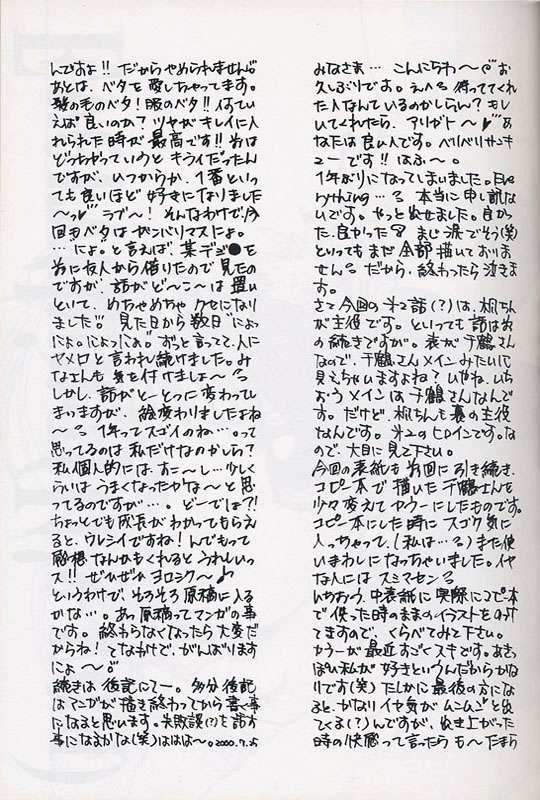 みなさま… こんにちわ～♥お
久しぶりです。えへ 待っててくれ
た人なんているのかしらん? もし
いてくれたら、アリガト～♥あ
なたは良い人です。ベリベリサンキ
ューです!! はふ～。
1年ぶりになってしまいました。Eve
rything… 本当に申し訳な
いです。やっと出せました。良か
った、良かった まじ涙でそう(笑)
といってもまだ全部描いておりま
せん。だから、終わったら泣きま
す。
さて今回の第2話(?)は、梱ちん
が主役です。といっても話は前
の続きですが。表が千鶴さん
なので、千鶴さんメインみたいに
見えちゃいますよね? いやね、いち
おうメインは千鶴さんなんで
す。だけど、ちんも裏の主役
なんです。第2のヒロインです。な
ので、大目に見て下さい。
今回の表紙も前回に引き続き、
コピー本で描いた千鶴さんを
少々変えてカラーにしたものです。
コピー本にした時にスゴク気に
入っちゃって、(私は…)また使
いまわしになっちゃいました。イヤ
な人にはスミマセン
いちおう、中表紙に実際にコピー本
で使った時のままのイラストをのけ
てますので、くらべてみて下さい。
カラーが最近すごくスキです。あきっ
ぽい私が好きというんだからかな
りです(笑) たしかに最後の方にな
ると、かなりイヤ気がムンムンと出
てくる(?)んですが、出き上がった
時の快感って言ったらも～たまら
んですよ!! だからやめられません。
あとは、ベタを愛しちゃってます。
髪の毛のベタ! 服のベタ!! 何てい
えば良いのか? ツヤがキレイに入
れられた時が最高です!! 前は
どっちかっていうとキライだったん
ですが、いつからか、1番といっ
ても良いほど好きになりました
～♥ラブ～! そんなわけで、今
回もベタはガンバリマスにょ。
…“にょ。”と言えば、某デジ●を
前に友人から借りたので見たの
ですが、話がど～こ～は置い
といて、めちゃめちゃクセになり
ました!! 見た日から数日“にょっ
にょ。にょっにょ。”ずっと言ってて、人に
ヤメロと言われ続けました。み
なさんも気を付けましょ～
しかし、話がとーとつに変わってし
まいますが、絵変わりましたよね
～ 1年ってスゴイのね…。って
思ってるのは私だけなのかしら?
私個人的には、すこ～し…少しく
らいはうまくなったかな～と思
ってるのですが…。どーでしょ?!
ちょっとでも成長がわかってもらえ
ると、ウレシイですね! んでもって
感想なんかもくれるとうれしいっ
ス!! ぜひぜひヨロシク～♪
というわけで、そろそろ原稿に入る
かな…。あっ原稿ってマンガの事
です。終わらなくなったら大変だ
からね! てなわけで、がんばります
にょ～
続きは後記にてー。多分後記
はマンガが描き終わってから書く事
になると思います。失敗談(?)を話す
事になるかな(笑)ははは～。2000.7.25